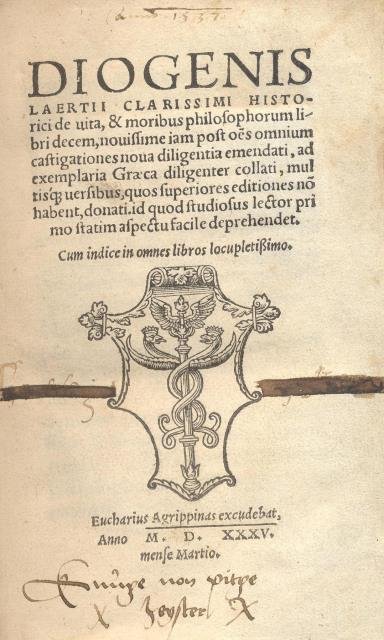 Anno 1537.
DIOGENIS
LAERTII CLARISSIMI HISTO-
rici de uita, & moribus philosophorum li-
bri decem, nouissime iam post oẽs omnium
castigationes noua diligentia emendati, ad
exemplaria Græca diligenter collati, mul
tisq́; uersibus, quos superiores editiones nõ
habent, donati. id quod studiosus lector pri
mo statim aspectu facile deprehendet.
Cum indice in omnes libros locupletißimo.
Eucharius Agrippinas excudebat,
Anno M. D. XXXV.
mense Martio.
non
X X